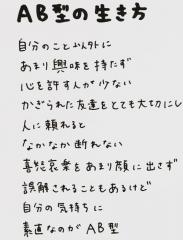 AB型の生き方
自分のこと以外に
あまり興味を持たず
心を許す人が少ない
かぎられた友達をとても大切にし
人に頼れると
なかなか断れない
喜怒哀楽をあまり顔に出さず
誤解されることもあるけど
自分の気持ちに
素直なのがAB型